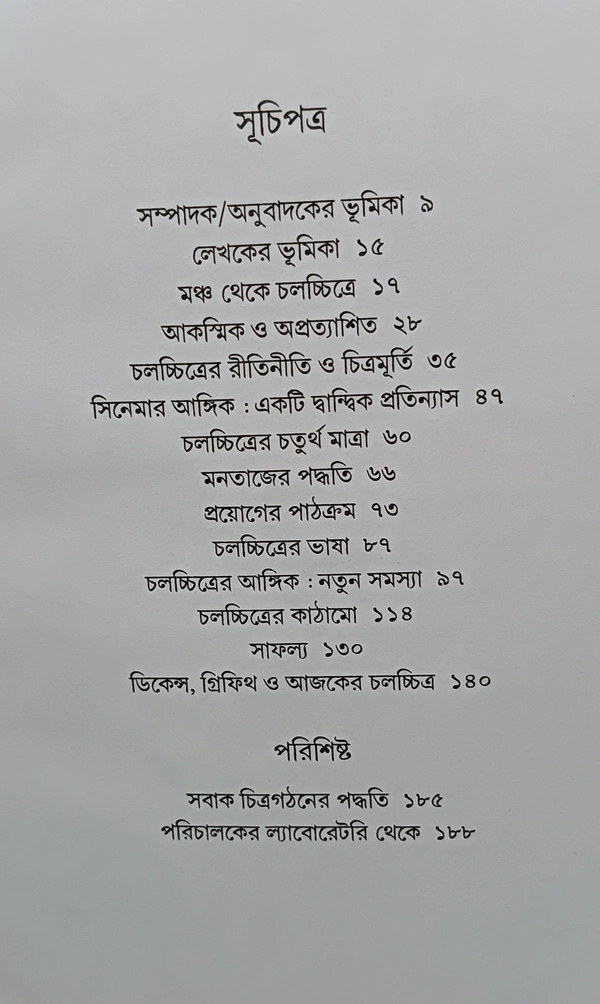 সূচিপত্র
সম্পাদক/অনুবাদকের ভূমিকা ৯
লেখকের ভূমিকা ১৫
মঞ্চ থেকে চলচ্চিত্রে ১৭
আকস্মিক ও অপ্রত্যাশিত ২৮
চলচ্চিত্রের রীতিনীতি ও চিত্রমূর্তি ৩৫
সিনেমার আঙ্গিক : একটি দ্বান্দ্বিক প্রতিন্যাস ৪৭
চলচ্চিত্রের চতুর্থ মাত্রা ৬০
মনতাজের পদ্ধতি ৬৬
প্রয়োগের পাঠক্রম ৭৩
চলচ্চিত্রের ভাষা ৮৭
চলচ্চিত্রের আঙ্গিক : নতুন সমস্যা ৯৭
চলচ্চিত্রের কাঠামো ১১৪
সাফল্য ১৩০
ডিকেন্স, গ্রিফিথ ও আজকের চলচ্চিত্র ১৪০
পরিশিষ্ট
সবাক চিত্রগঠনের পদ্ধতি ১৮৫
পরিচালকের ল্যাবোরেটরি থেকে ১৮৮